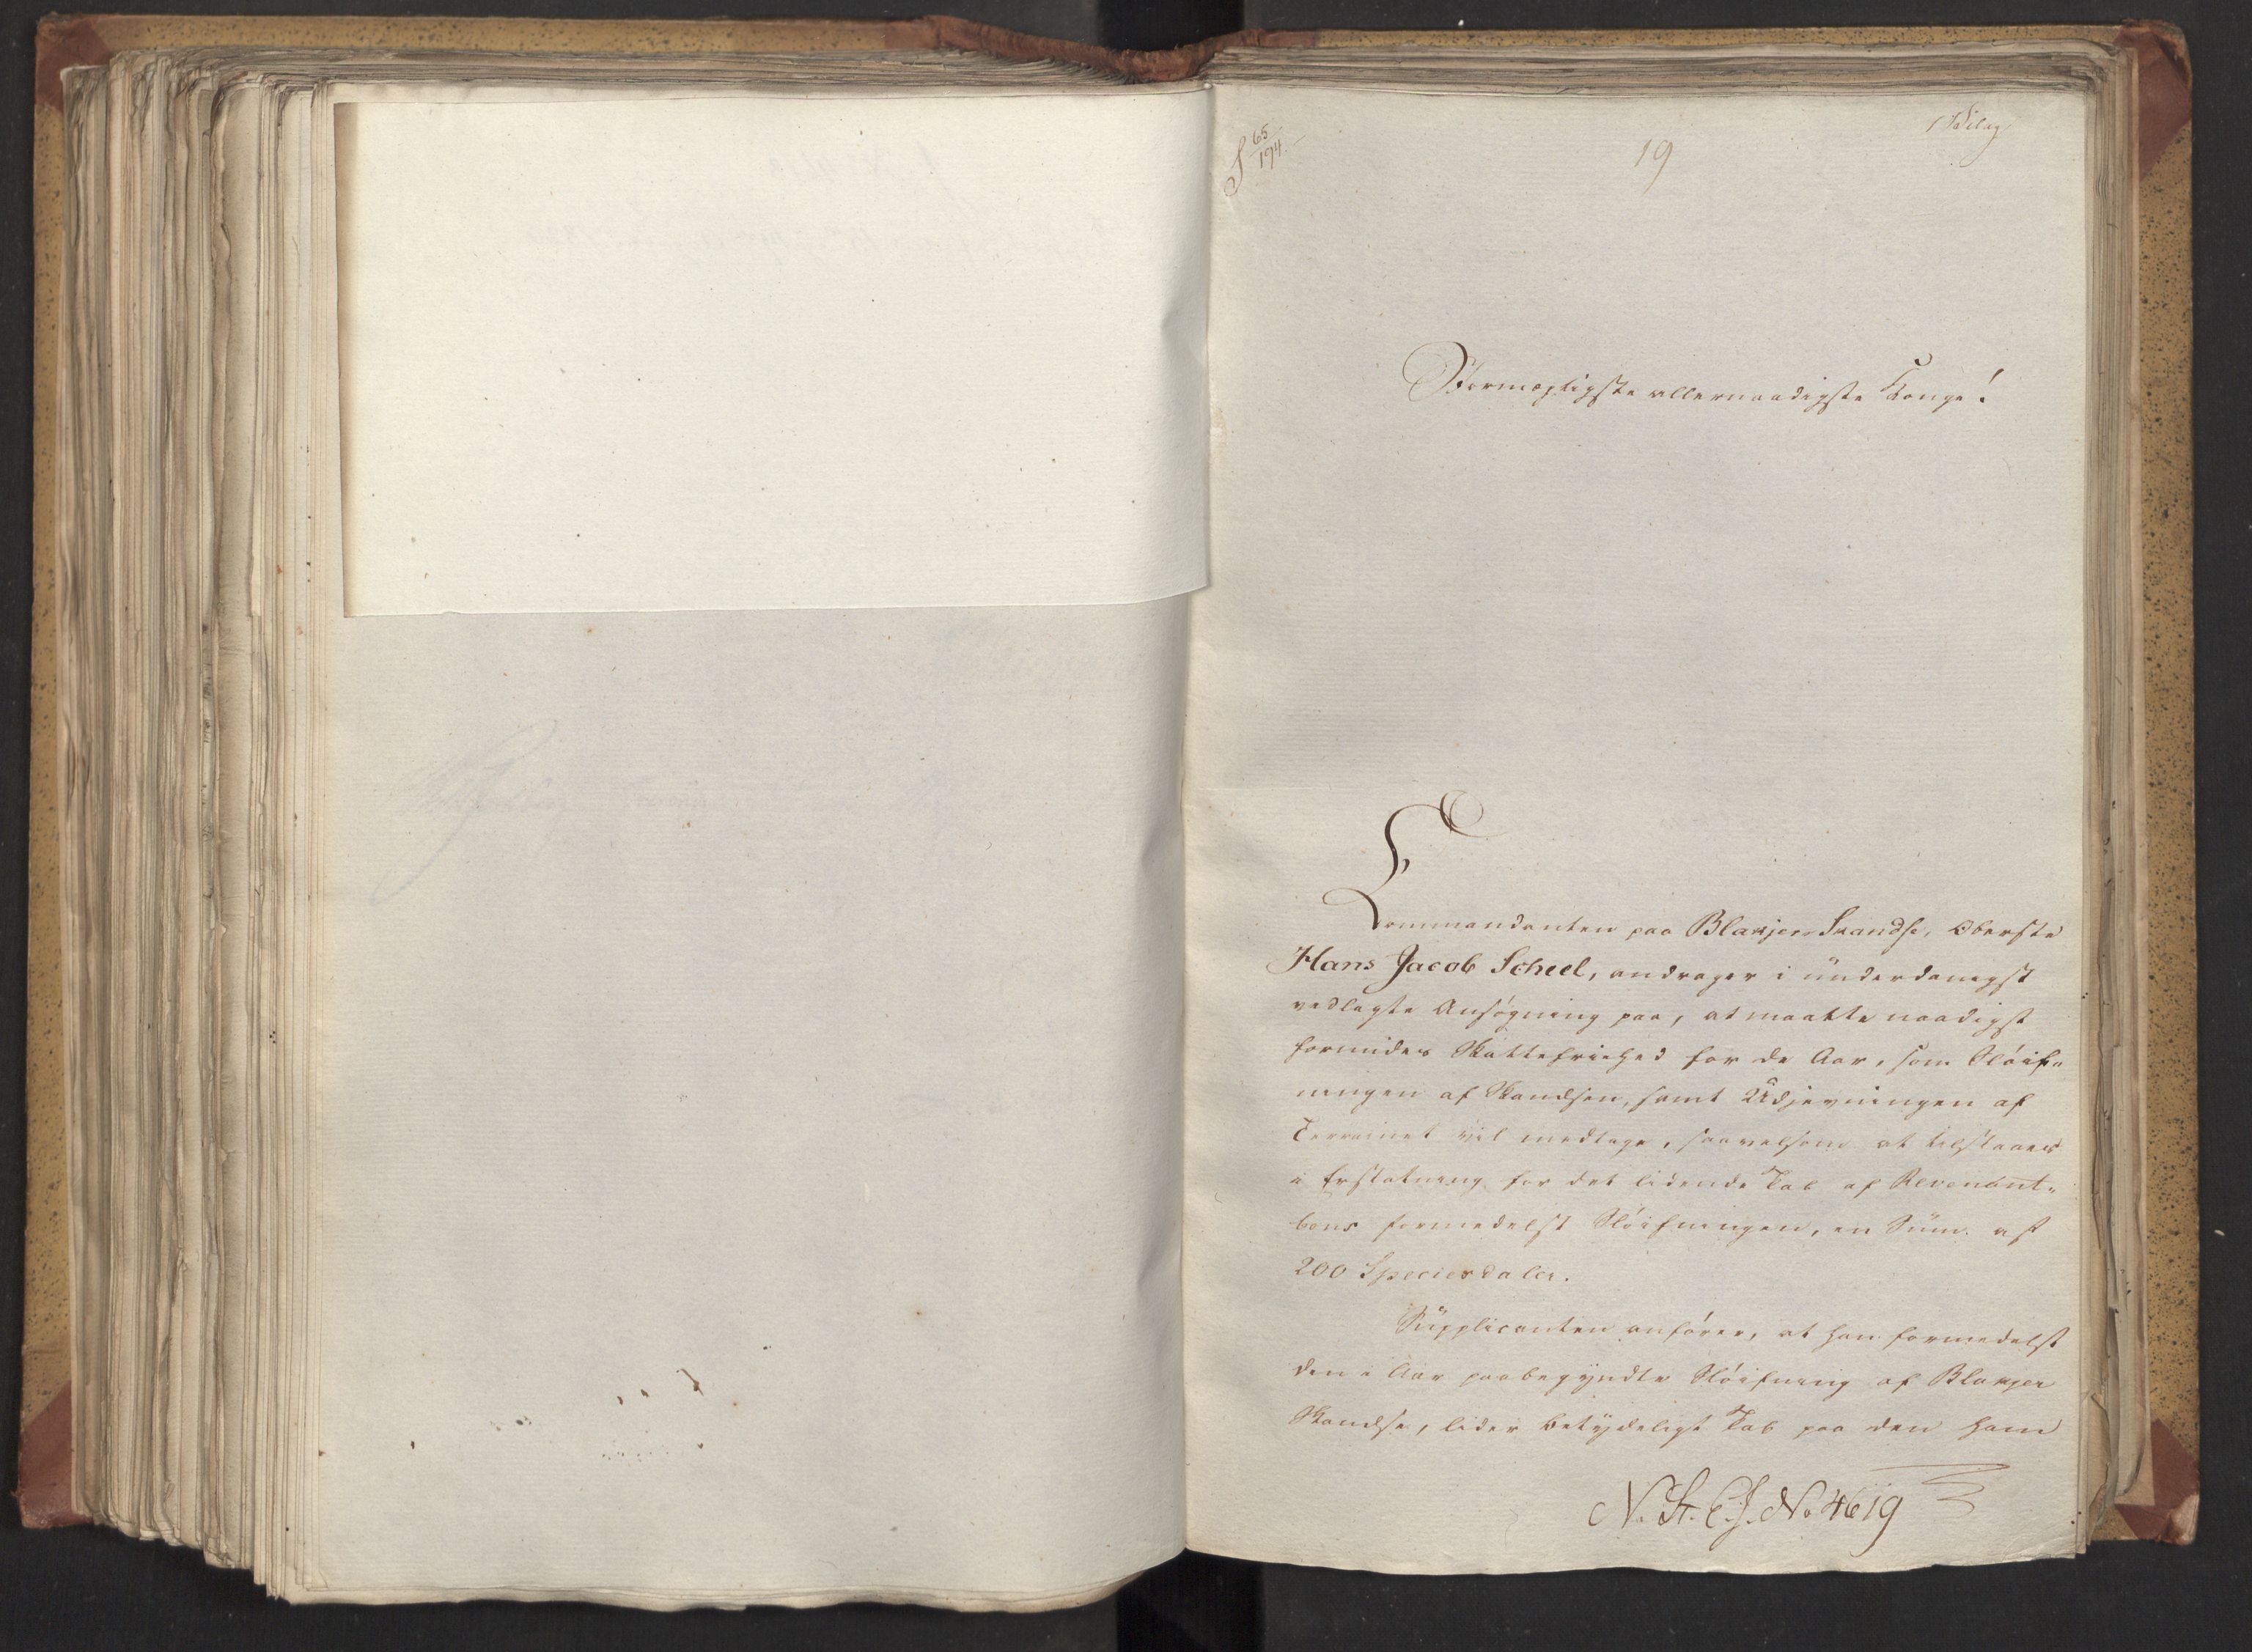 S 65/194.
19
1 Bilag
Stormægtigste allernaadigste Konge!
Commandanten paa Blakjer Skandse, Oberste
Hans Jacob Scheel, andrager i underdanigst
vedlagte Ansøgning paa, at maatte naadigst
forundes Skattefriehed for de Aar, som Sløif-
ningen af Skandsen, samt Udjevningen af
Terrainet vil medtage, saavelsom at tilstaaes
i Erstatning for det lidende Tab af Revenant-
bons formedelst Sløifningen, en Sum af
200 Speciesdaler.
Supplicanten anfører, at han formedelst
den i Aar paabegyndte Sløifning af Blakjer
Skandse, lider betydeligt Tab paa den ham
N. St. C. J. No 4619